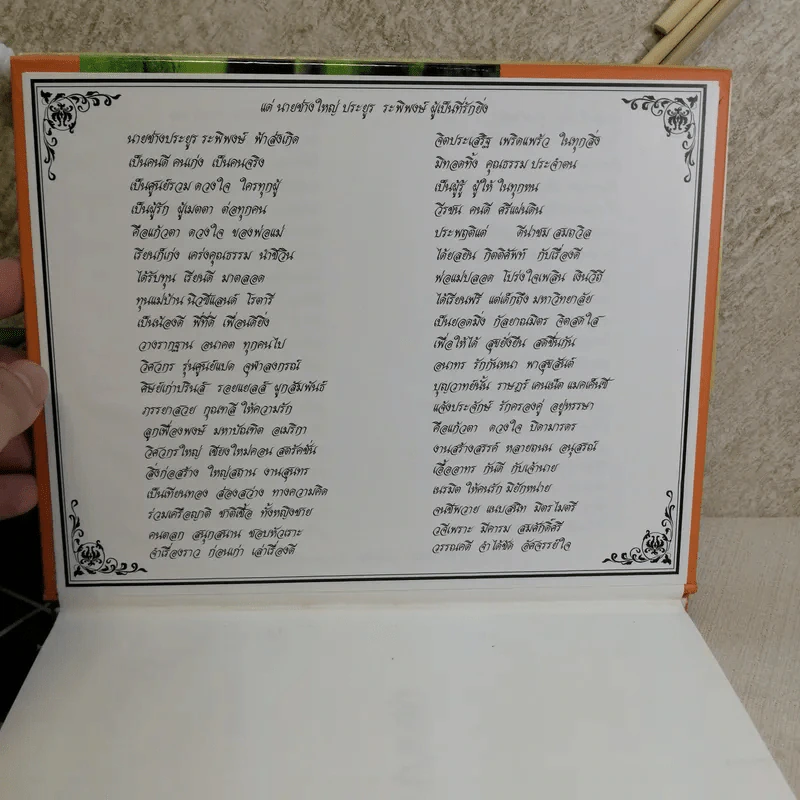 แด่ นายช่างใหญ่ ประยูร ระพิพงษ์ ผู้เป็นที่รักยิ่ง
นายช่างประยูร ระพิพงษ์ ฟ้าส่งเกิด
เป็นคนดี คนเก่ง เป็นคนจริง
เป็นศูนย์รวม ดวงใจ ใครทุกผู้
เป็นผู้รัก ผู้เมตตา ต่อทุกคน
คือแก้วตา ดวงใจ ของพ่อแม่
เรียนก็เก่ง เคร่งคุณธรรม นำชีวิน
ได้รับทุน เรียนดี มาตลอด
ทุนแม่บ้าน นิวซีแลนด์ โรตารี
เป็นน้องดี พี่ที่ดี เพื่อนดียิ่ง
วางรากฐาน อนาคต ทุกคนไป
วิศวกร รุ่นศูนย์แปด จุฬาลงกรณ์
ศิษย์เก่าปรินส์ รอยแยลส์ ผูกสัมพันธ์
ภรรยาสวย กุณฑลี ให้ความรัก
ลูกเฟื่องพงษ์ มหาบัณฑิต อเมริกา
วิศวกรใหญ่ เชียงใหม่คอน สตรัคชั่น
สิ่งก่อสร้าง ใหญ่สถาน งานสุนทร
เป็นเทียนทอง ส่องสว่าง ทางความคิด
ร่วมเครือญาติ ชาติเชื้อ ทั้งหญิงชาย
คนตลก สนุกสนาน ชอบหัวเราะ
จำเรื่องราว ก่อนเก่า เล่าเรื่องดี
จิตประเสริฐ เพริดแพร้ว ในทุกสิ่ง
มิทอดทิ้ง คุณธรรม ประจำตน
เป็นผู้รู้ ผู้ให้ ในทุกหน
วีรชน คนดี ศรีแผ่นดิน
ประพฤติแต่ ดีน่าชม สมถวิล
ได้ยลยิน กิตติศัพท์ กับเรื่องดี
พ่อแม่ปลอด โปร่งใจเพลิน เงินวิถี
ได้เรียนฟรี แต่เด็กถึง มหาวิทยาลัย
เป็นยอดมิ่ง กัลยาณมิตร จิตสดใส
เพื่อให้ได้ สุขยั่งยืน สดชื่นกัน
อนาทร รักกันหนา พาสุขสันต์
บุญวาทย์นั้น ราษฎร์ เคนเน็ต แมคเค็นซี
แจ้งประจักษ์ รักครองคู่ อยู่หรรษา
คือแก้วตา ดวงใจ บิดามารดร
งานสร้างสรรค์ หลายถนน อนุสรณ์
เอื้ออาทร กันดี กับเจ้านาย
เนรมิต ให้คนรัก มิยักหน่าย
จนชีพวาย แนบสนิท มิตรไมตรี
วจีเพราะ มีคารม สมศักดิ์ศรี
วรรณคดี จำได้ชัด อัศจรรย์ใจ